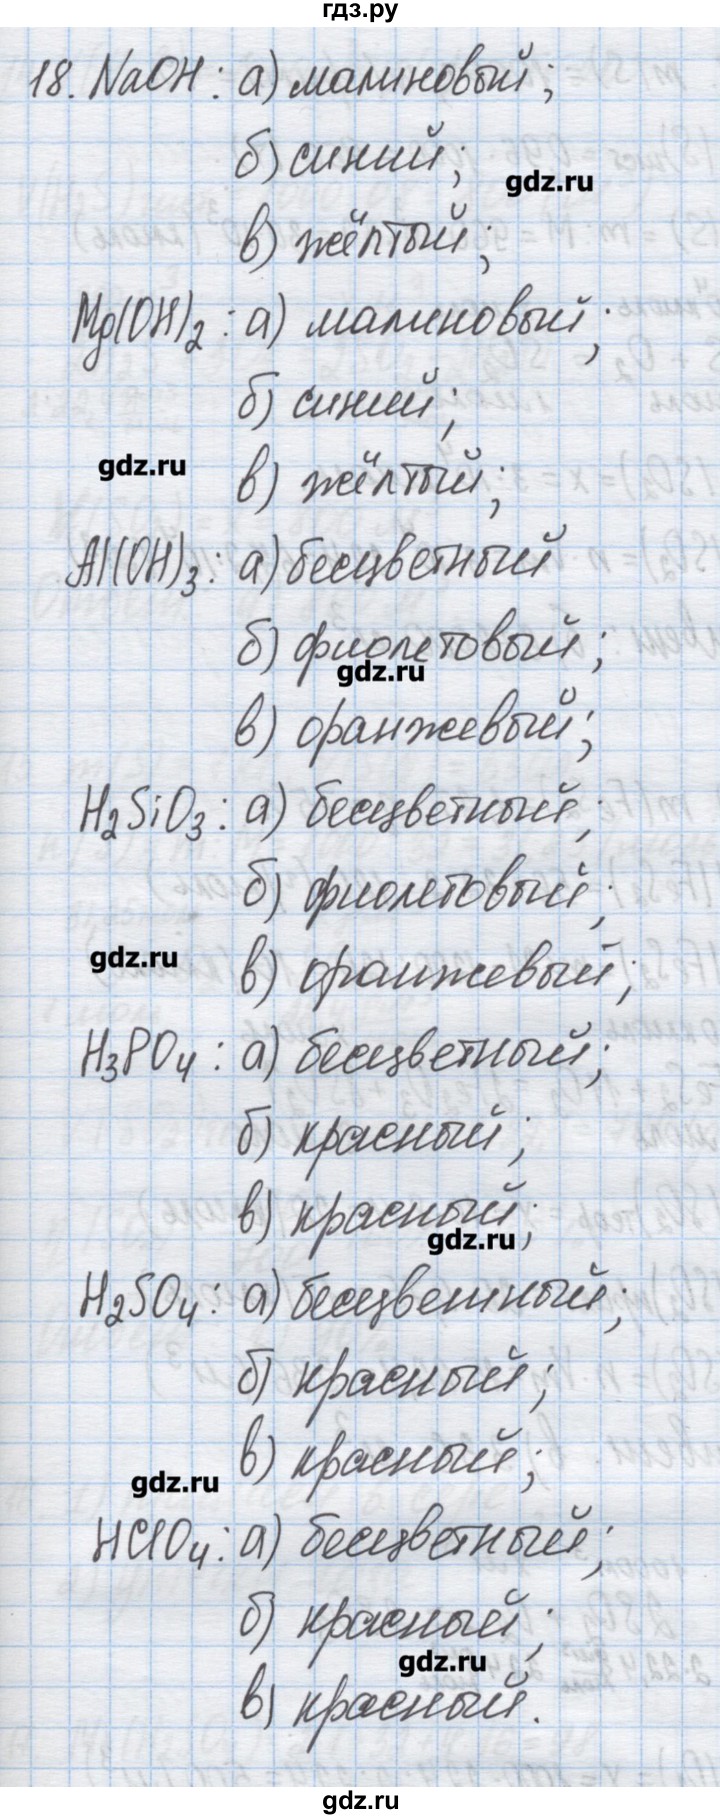 гдз.ру
18. NaOH: а) малиновый;
б) синий;
gdz.ru
в) жёлтый;
Mg(OH)₂: а) малиновый;
б) синий;
gdz.ru
в) жёлтый;
Al(OH)₃: а) бесцветный
б) фиолетовый;
gdz.ru
в) оранжевый;
H₂SiO₃: а) бесцветный;
б) фиолетовый;
gdz.ru
в) оранжевый;
H₃PO₄: а) бесцветный;
б) красный;
в) красный;
gdz.ru
H₂SO₄: а) бесцветный;
б) красный;
в) красный;
gdz.ru
HClO₄: а) бесцветный;
б) красный;
gdz.ru
в) красный.
gdz.ru